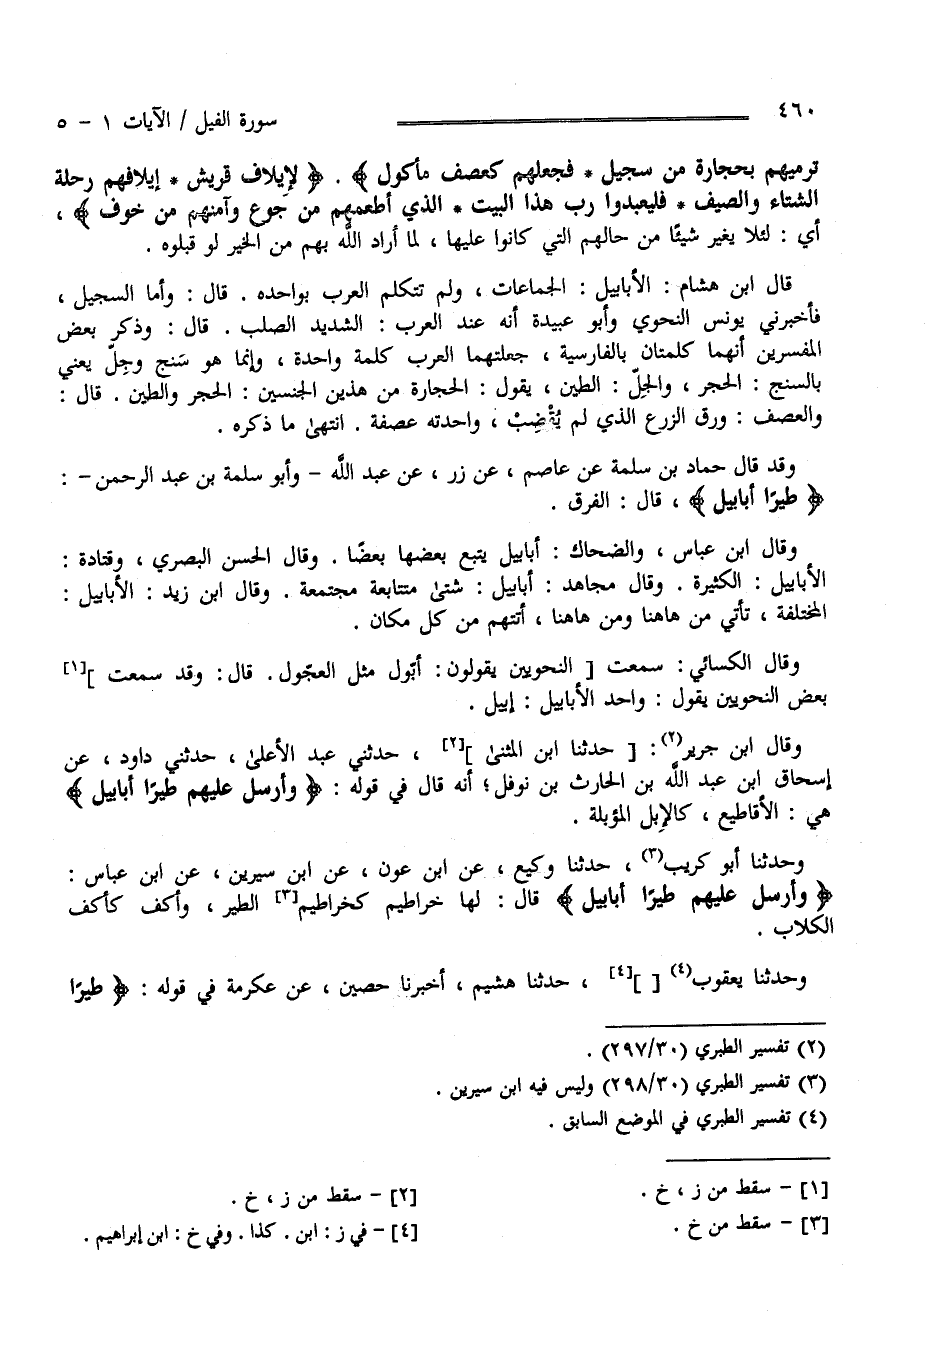 ٤٦٠ سورة الفيل / الآيات ١ - ٥
ترميهم بحجارة من سجيل * فجعلهم كعصف مأكول ﴾ . ﴿ لإيلاف قريش * إيلافهم رحلة
الشتاء والصيف * فليعبدوا رب هذا البيت * الذي أطعمهم من جوع وآمنهم من خوف ﴾ ،
أي : لئلا يغير شيئًا من حالهم التي كانوا عليها ، لما أراد اللَّه بهم من الخير لو قبلوه .
قال ابن هشام : الأبابيل : الجماعات ، ولم تتكلم العرب بواحده . قال : وأما السجيل ،
فأخبرني يونس النحوي وأبو عبيدة أنه عند العرب : الشديد الصلب . قال : وذكر بعض
المفسرين أنهما كلمتان بالفارسية ، جعلتهما العرب كلمة واحدة ، وإنما هو سَنج وجِلّ يعني
بالسنج : الحجر ، والجلّ : الطين ، يقول : الحجارة من هذين الجنسين : الحجر والطين . قال :
والعصف : ورق الزرع الذي لم يُقْضِبْ ، واحدته عصفة . انتهىٰ ما ذكره .
وقد قال حماد بن سلمة عن عاصم ، عن زر ، عن عبد اللَّه - وأبو سلمة بن عبد الرحمن - :
﴿ طيرًا أبابيل ﴾ ، قال : الفرق .
وقال ابن عباس ، والضحاك : أبابيل يتبع بعضها بعضًا . وقال الحسن البصري ، وقتادة :
الأبابيل : الكثيرة . وقال مجاهد : أبابيل : شتىٰ متتابعة مجتمعة . وقال ابن زيد : الأبابيل :
المختلفة ، تأتي من هاهنا ومن هاهنا ، أتتهم من كل مكان .
وقال الكسائي : سمعت [ النحويين يقولون : أبّول مثل العجّول . قال : وقد سمعت ][١]
بعض النحويين يقول : واحد الأبابيل : إبيل .
وقال ابن جرير(٢) : [ حدثنا ابن المثنىٰ ][٢] ، حدثني عبد الأعلىٰ ، حدثني داود ، عن
إسحاق ابن عبد اللَّه بن الحارث بن نوفل ؛ أنه قال في قوله : ﴿ وأرسل عليهم طيرًا أبابيل ﴾
هي : الأقاطيع ، كالإبل المؤبلة .
وحدثنا أبو كريب(٣) ، حدثنا وكيع ، عن ابن عون ، عن ابن سيرين ، عن ابن عباس :
﴿ وأرسل عليهم طيرًا أبابيل ﴾ قال : لها خراطيم كخراطيم[٣] الطير ، وأكف كأكف
الكلاب .
وحدثنا يعقوب(٤) [ ][٤] ، حدثنا هشيم ، أخبرنا حصين ، عن عكرمة في قوله : ﴿ طيرًا
(٢) تفسير الطبري (٢٩٧/٣٠) .
(٣) تفسير الطبري (٢٩٨/٣٠) وليس فيه ابن سيرين .
(٤) تفسير الطبري في الموضع السابق .
[١] - سقط من ز ، خ . [٢] - سقط من ز ، خ .
[٣] - سقط من خ . [٤] - في ز : ابن . كذا . وفي خ : ابن إبراهيم .